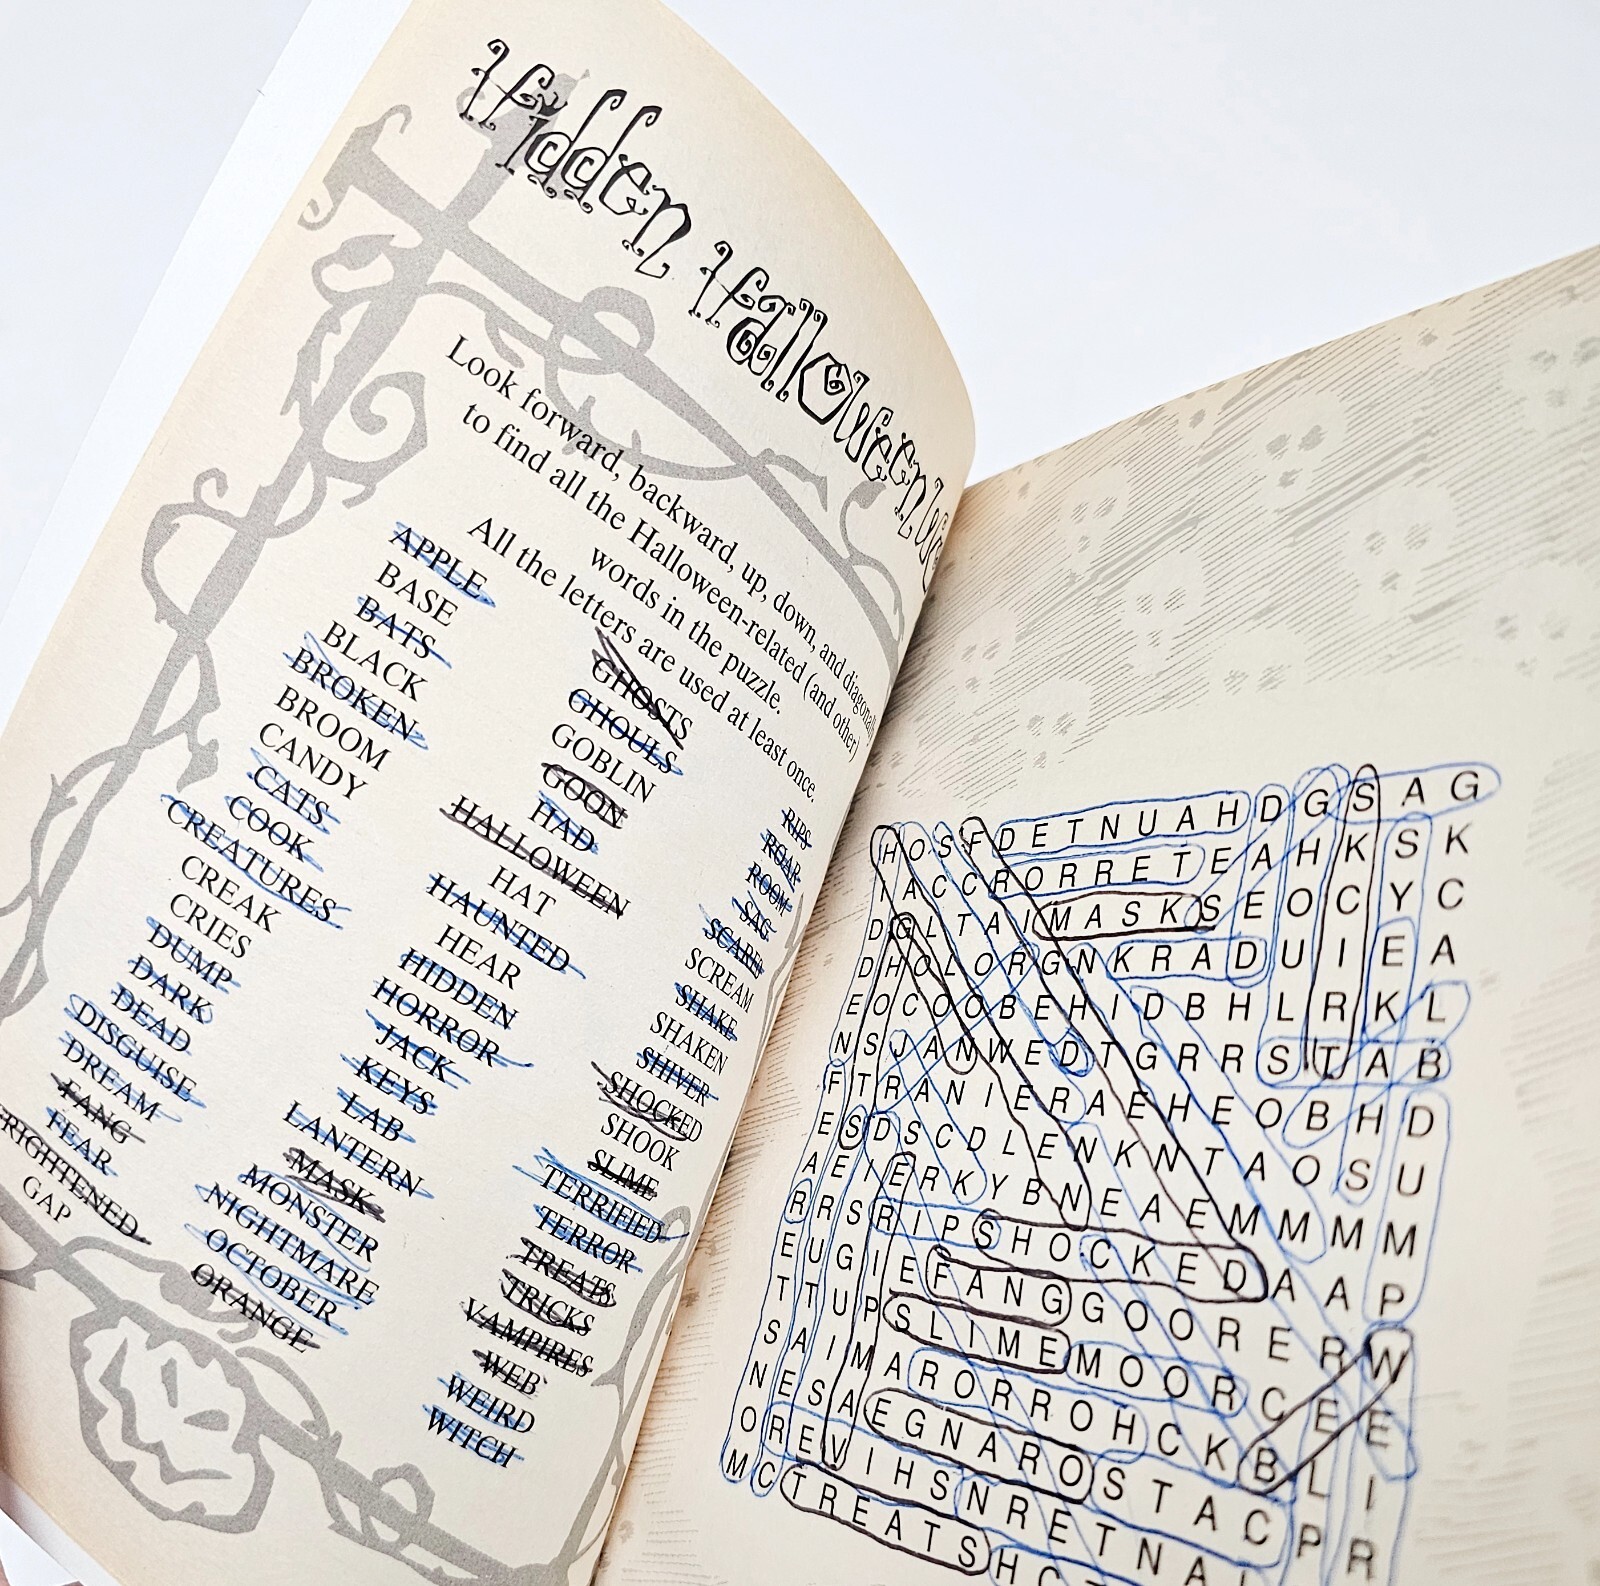 Hidden Halloween
Look forward, backward, up, down, and diagonally
to find all the Halloween-related (and other)
words in the puzzle.
All the letters are used at least once.
APPLE
BASE
BATS
BLACK
BROKEN
BROOM
CANDY
CATS
COOK
CREATURES
CREAK
CRIES
DUMP
DARK
DEAD
DISGUISE
DREAM
FANG
FEAR
FRIGHTENED
GAP
GHOSTS
GHOULS
GOBLIN
GOON
HAD
HALLOWEEN
HAT
HAUNTED
HEAR
HIDDEN
HORROR
JACK
KEYS
LAB
LANTERN
MASK
MONSTER
NIGHTMARE
OCTOBER
ORANGE
RIPS
ROAR
ROOM
SAG
SCARE
SCREAM
SHAKE
SHAKEN
SHIVER
SHOCKED
SHOOK
SLIME
TERRIFIED
TERROR
TREATS
TRICKS
VAMPIRES
WEB
WEIRD
WITCH
H O S F D E T N U A H D G S A G
I A C C R O R R E T E A H K S K
D G L T A I M A S K S E O C Y C
D H O L O R G N K R A D U I E A
E O C O O B E H I D B H L R K L
N S J A N W E D T G R R S T A B
F T R A N I E R A E H E O B H D
E S D S C D L E N K N T A O S U
A E I E R K Y B N E A E M M M M
R R S R I P S H O C K E D A A P
E U G I E F A N G G O O R E R W
T T U P S L I M E M O O R C E E
S A I M A R O R R O H C K B L I
N E S A E G N A R O S T A C P R
O R E V I H S N R E T N A L
M C T R E A T S H C T